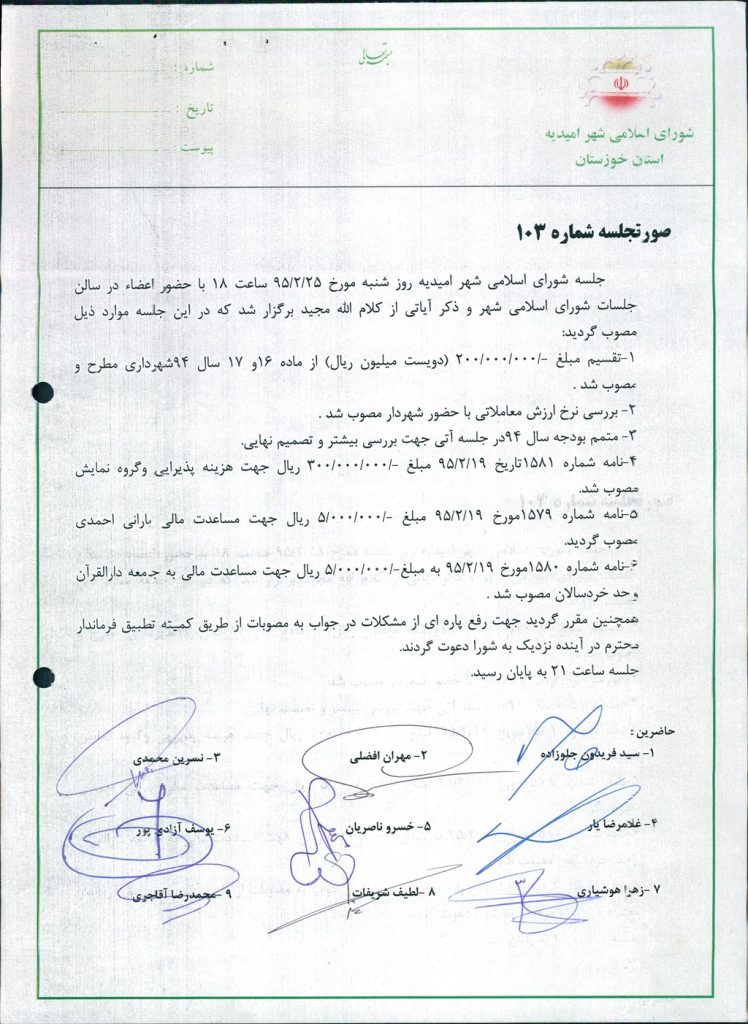 بسمه تعالی
شماره :
تاریخ :
پیوست :
شورای اسلامی شهر امیدیه
استان خوزستان
صورتجلسه شماره ۱۰۳
جلسه شورای اسلامی شهر امیدیه روز شنبه مورخ ۹۵/۲/۲۵ ساعت ۱۸ با حضور اعضاء در سالن
جلسات شورای اسلامی شهر و ذکر آیاتی از کلام الله مجید برگزار شد که در این جلسه موارد ذیل
مصوب گردید:
۱-تقسیم مبلغ -/۲۰۰/۰۰۰/۰۰۰ (دویست میلیون ریال) از ماده ۱۶و ۱۷ سال ۹۴شهرداری مطرح و
مصوب شد .
۲- بررسی نرخ ارزش معاملاتی با حضور شهردار مصوب شد .
۳- متمم بودجه سال ۹۴در جلسه آتی جهت بررسی بیشتر و تصمیم نهایی.
۴-نامه شماره ۱۵۸۱تاریخ ۹۵/۲/۱۹ مبلغ -/۳۰۰/۰۰۰/۰۰۰ ریال جهت هزینه پذیرایی وگروه نمایش
مصوب شد.
۵-نامه شماره ۱۵۷۹مورخ ۹۵/۲/۱۹ مبلغ -/۵/۰۰۰/۰۰۰ ریال جهت مساعدت مالی بارانی احمدی
مصوب گردید.
۶-نامه شماره ۱۵۸۰مورخ ۹۵/۲/۱۹ به مبلغ-/۵/۰۰۰/۰۰۰ ریال جهت مساعدت مالی به جامعه دارالقرآن
واحد خردسالان مصوب شد .
همچنین مقرر گردید جهت رفع پاره ای از مشکلات در جواب به مصوبات از طریق کمیته تطبیق فرماندار
محترم در آینده نزدیک به شورا دعوت گردند.
جلسه ساعت ۲۱ به پایان رسید.
حاضرین :
۱- سید فریدون جلوزاده
۲- مهران افضلی
۳- نسرین محمدی
۴- غلامرضا یار
۵- خسرو ناصریان
۶- یوسف آزادی پور
۷ -زهرا هوشیاری
۸ -لطیف شریفات
۹ -محمدرضا آقاجری